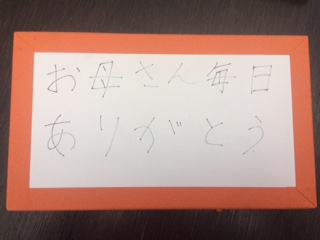 お母さん毎日
ありがとう